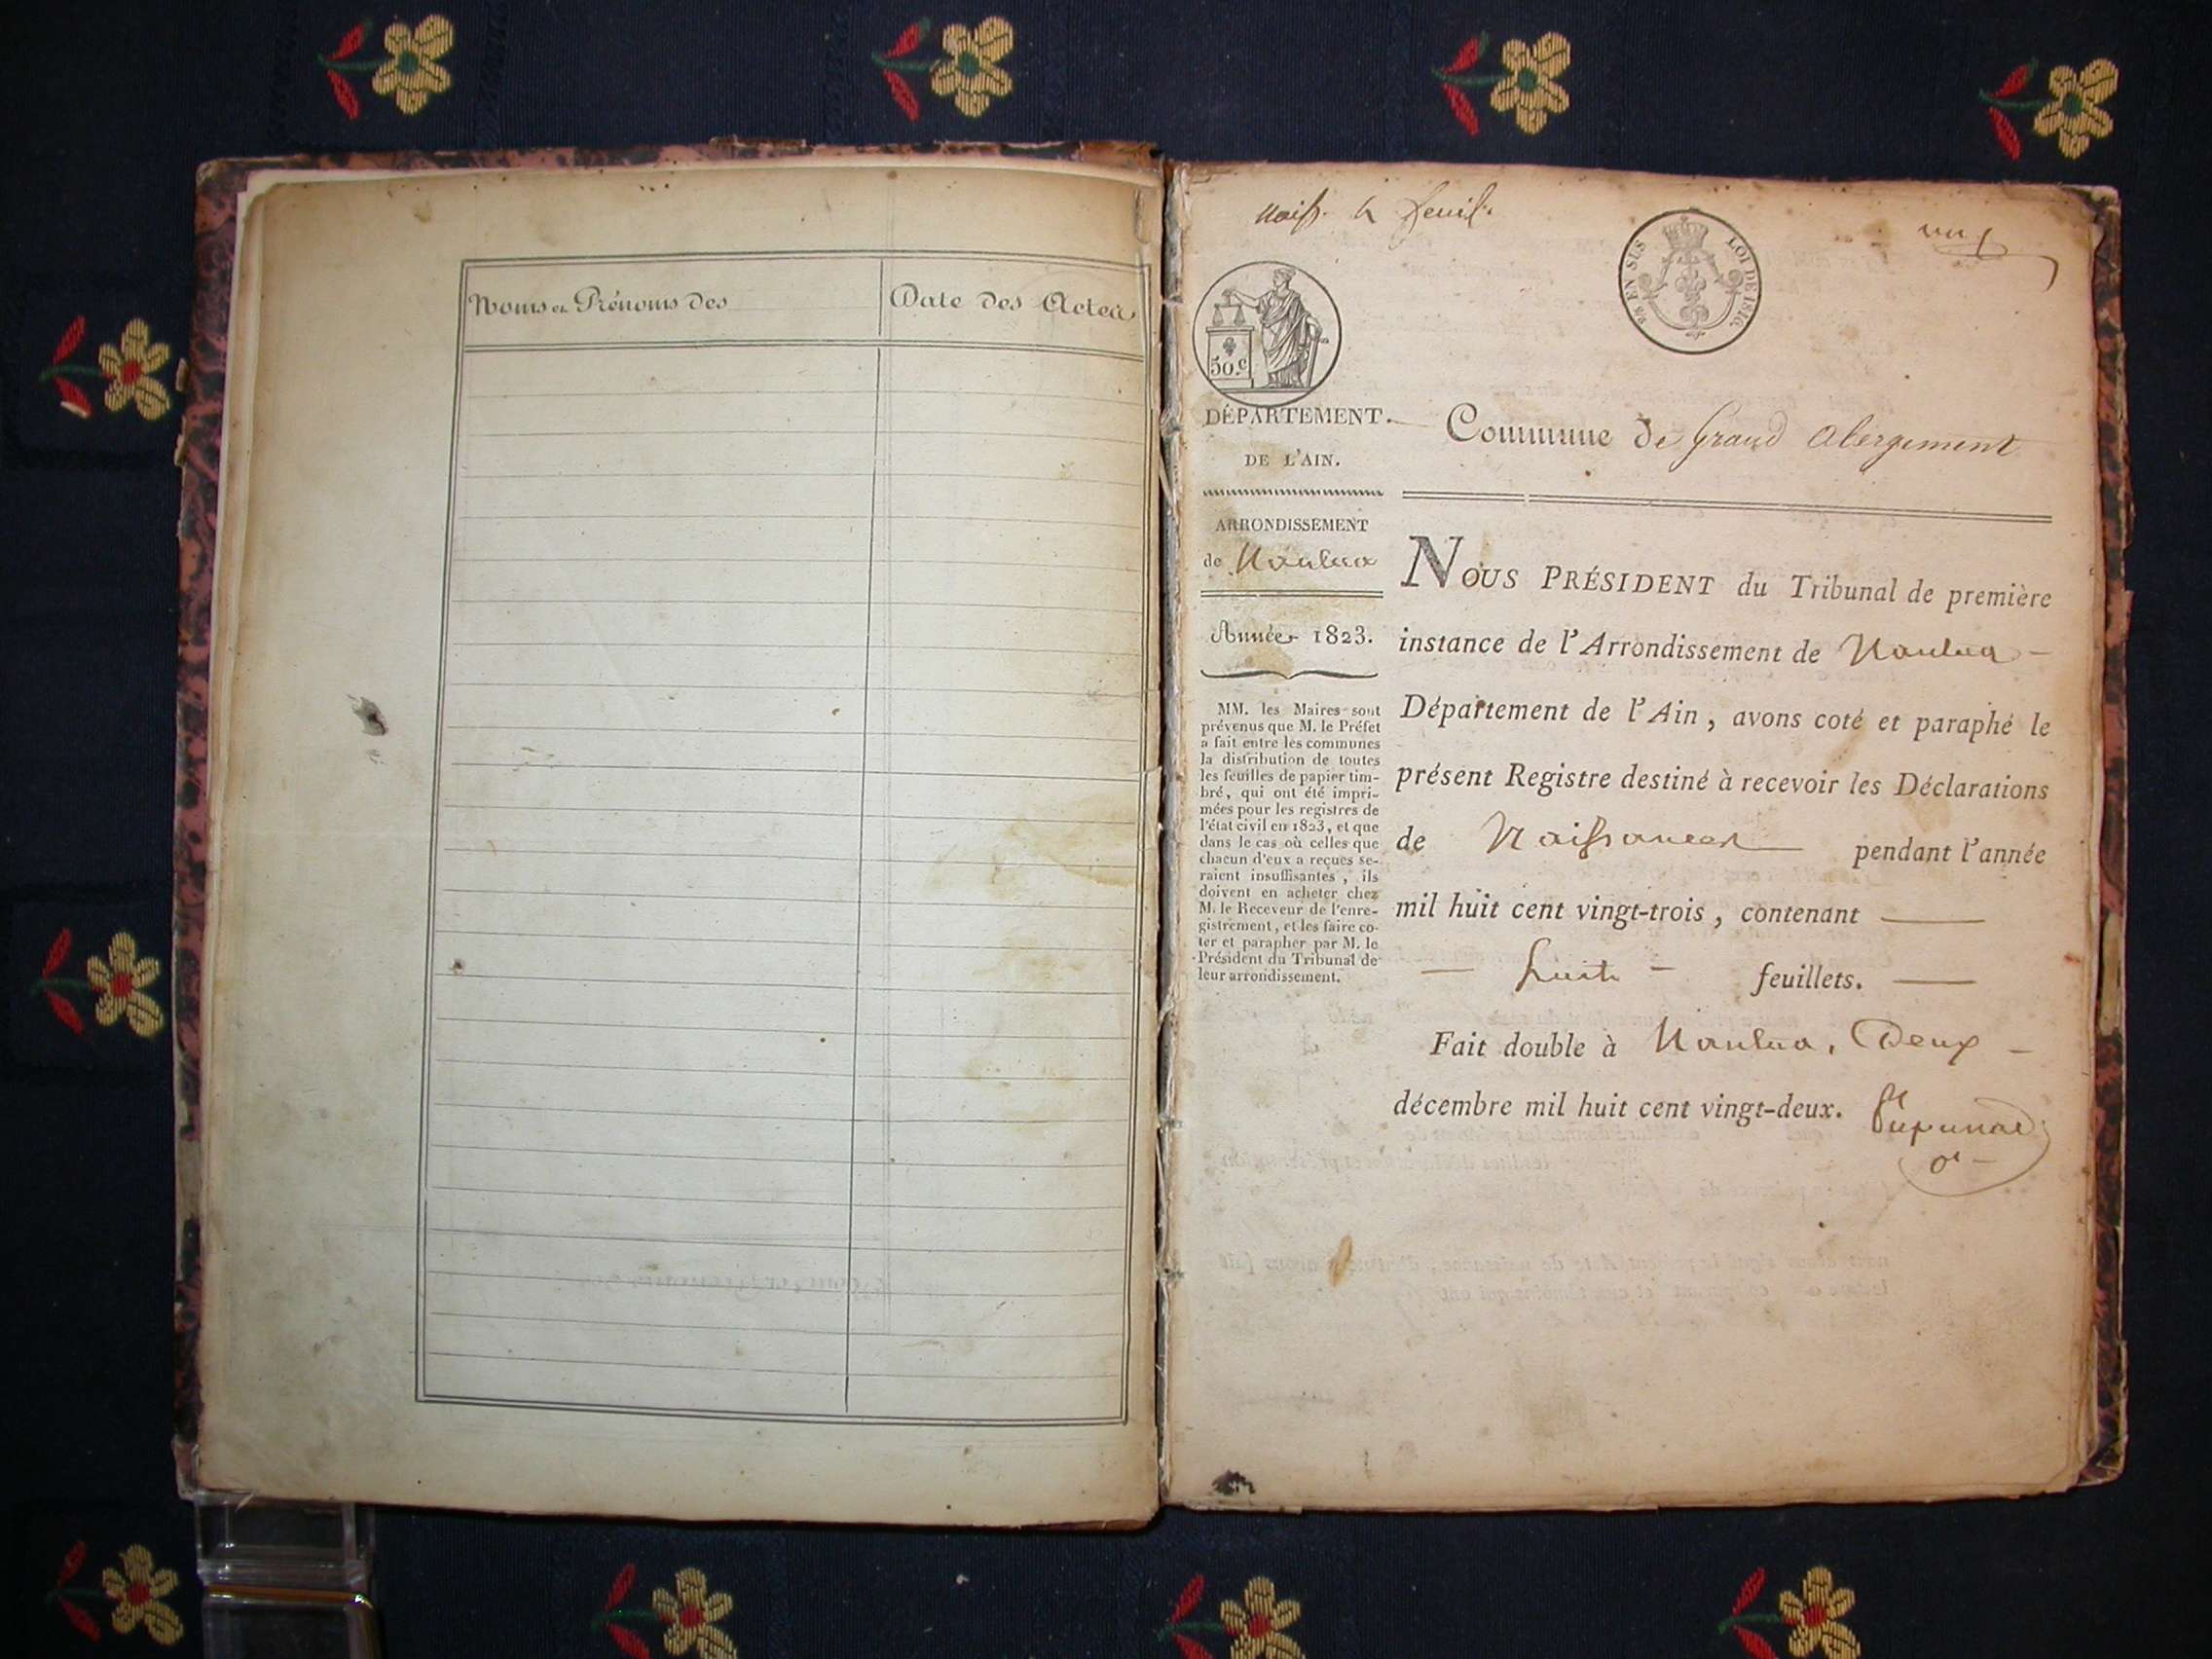 Noms et Prénoms des
Date des Actes
naiss. 4 feuil.
un
50.c
25 EN SUS
LOI DE 1816.
DÉPARTEMENT
DE L'AIN.
Commune de Grand abergement
ARRONDISSEMENT
de Nantua
Année 1823.
MM. les Maires sont
prévenus que M. le Préfet
a fait entre les communes
la distribution de toutes
les feuilles de papier tim-
bré, qui ont été impri-
mées pour les registres de
l'état civil en 1823, et que
dans le cas où celles que
chacun d'eux a reçues se-
raient insuffisantes, ils
doivent en acheter chez
M. le Receveur de l'enre-
gistrement, et les faire co-
ter et parapher par M. le
Président du Tribunal de
leur arrondissement.
NOUS PRÉSIDENT du Tribunal de première
instance de l'Arrondissement de Nantua
Département de l'Ain, avons coté et paraphé le
présent Registre destiné à recevoir les Déclarations
de Naissances pendant l'année
mil huit cent vingt-trois, contenant
huit feuillets.
Fait double à Nantua, Deux
décembre mil huit cent vingt-deux.